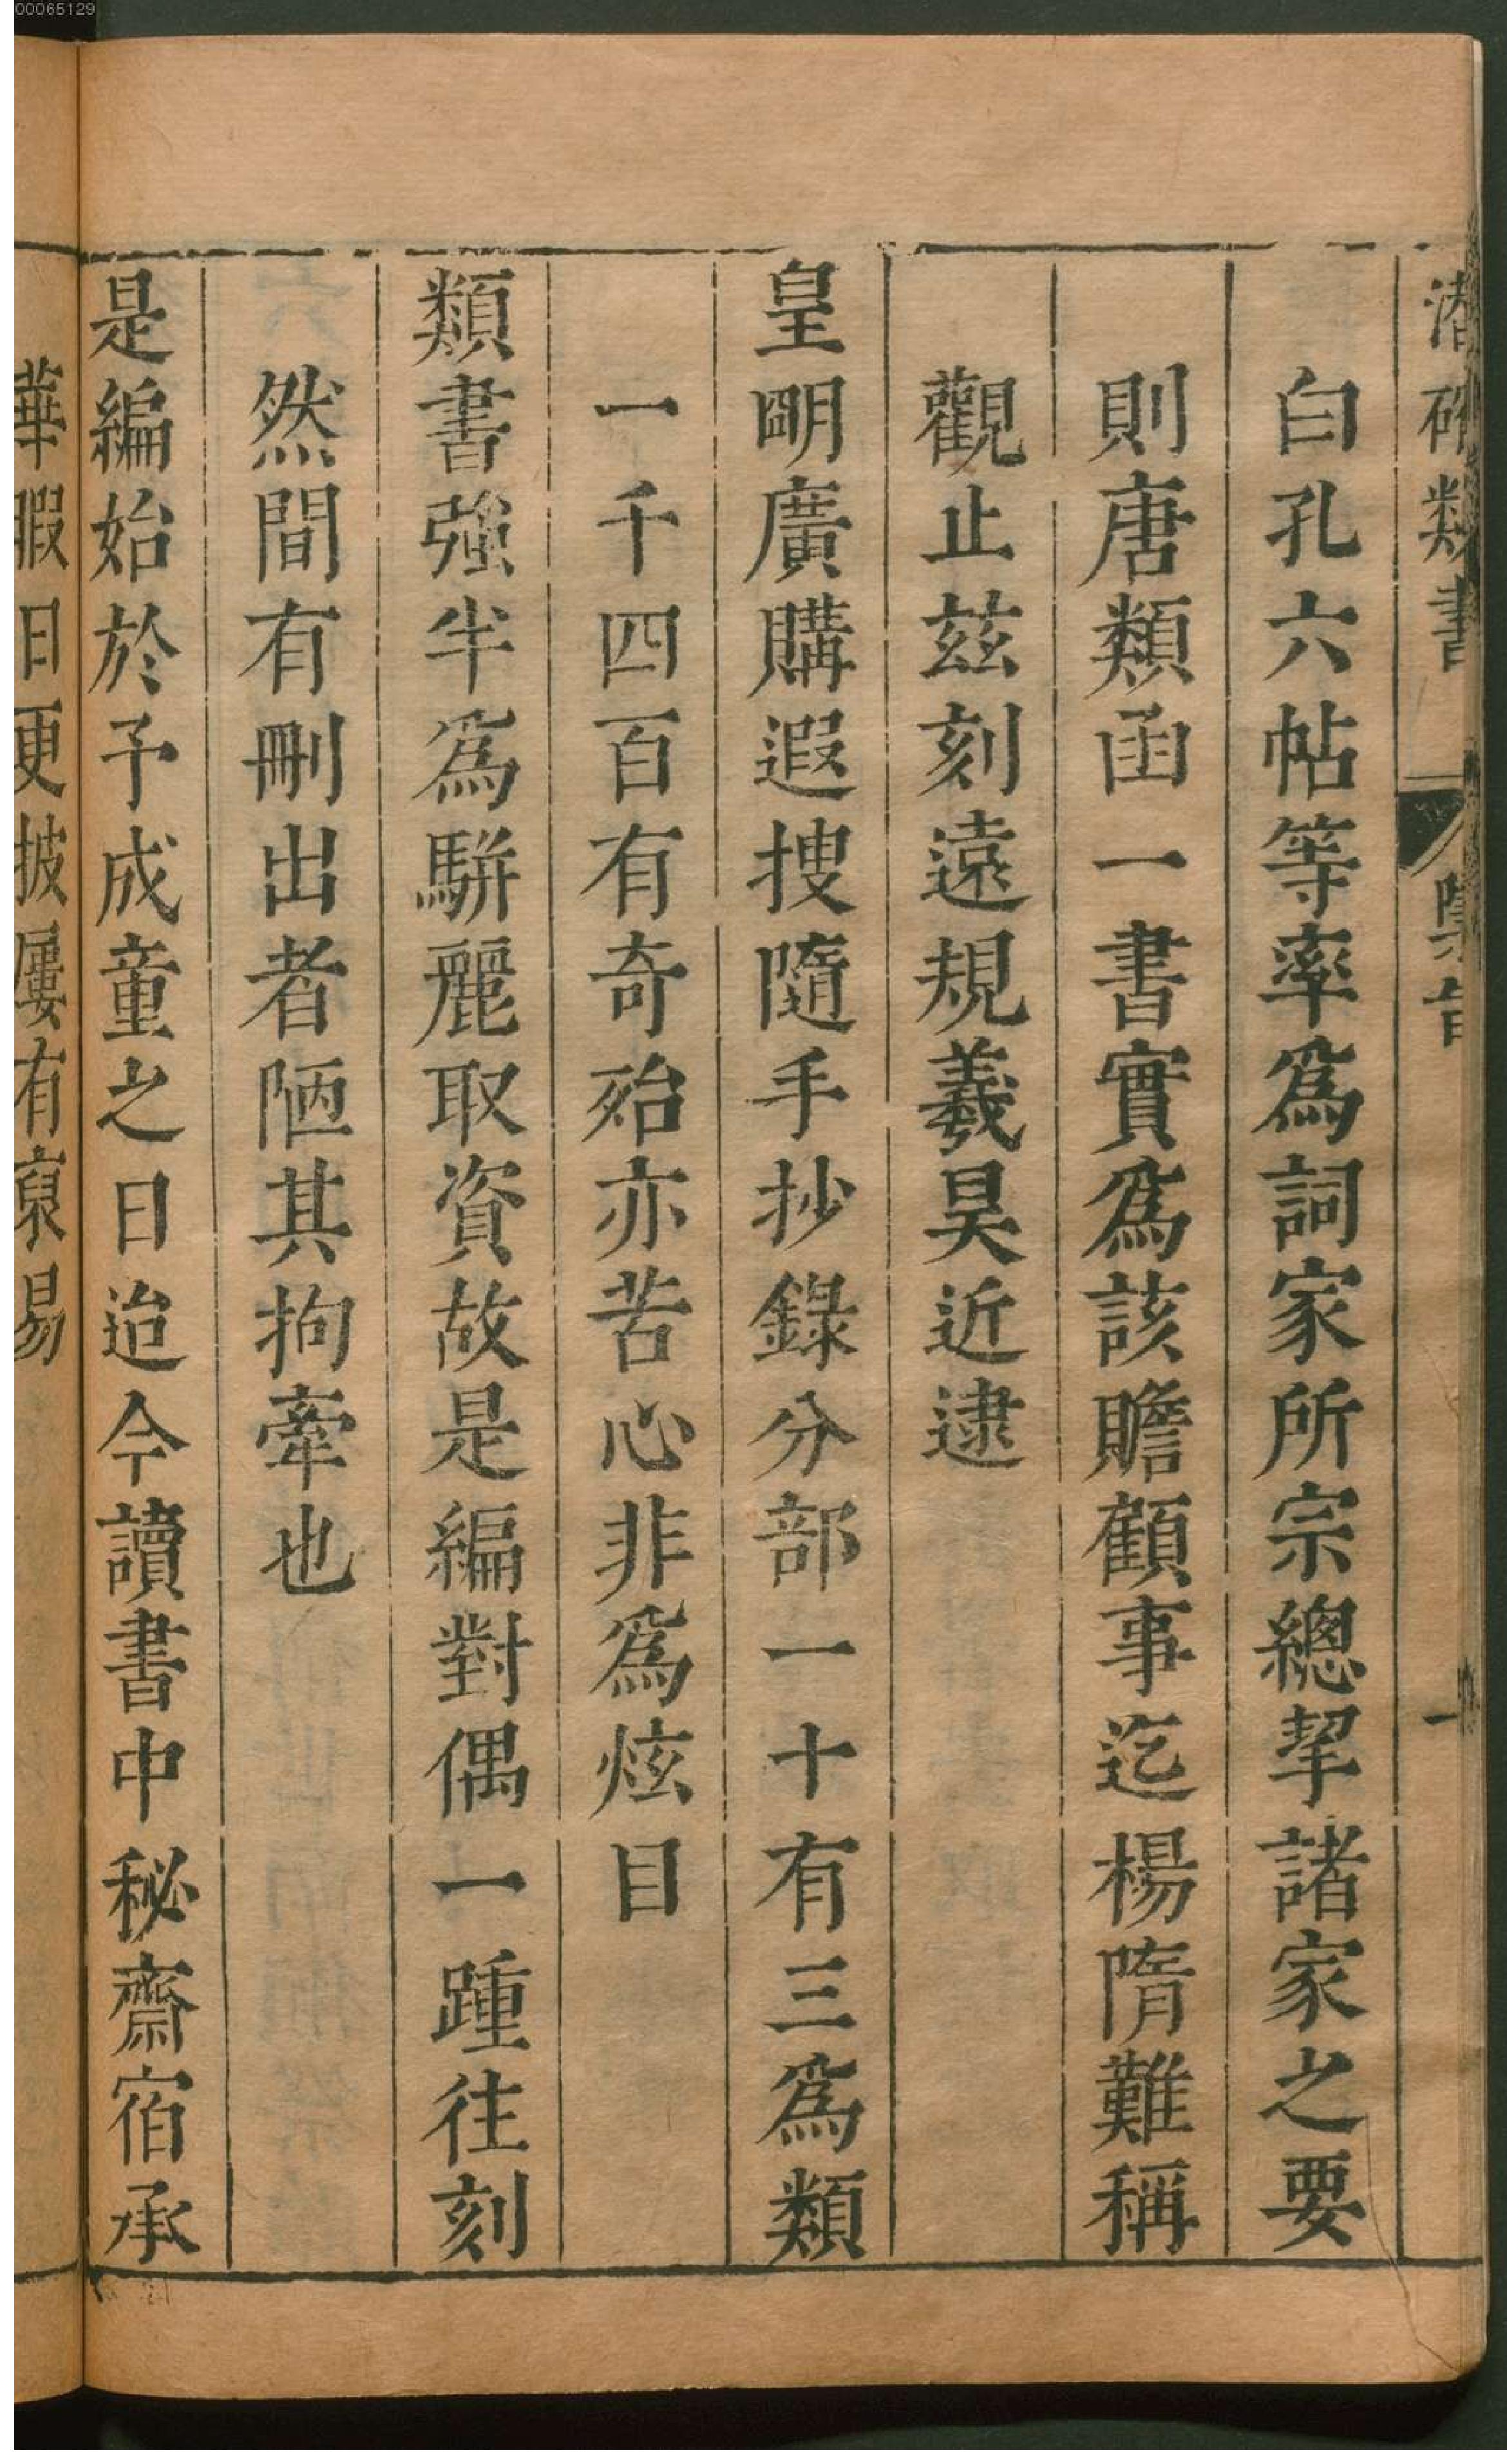 00065129
潛確類書
白孔六帖等率爲詞家所宗總挈諸家之要
則唐類函一書實爲該贍顧事迄楊隋難稱
觀止玆刻遠規羲昊近逮
皇明廣購遐搜隨手抄錄分部一十有三爲類
一千四百有奇殆亦苦心非爲炫目
類書強半爲駢麗取資故是編對偶一踵往刻
然間有刪出者陋其拘牽也
是編始於予成童之日迨今讀書中秘齋宿承
華暇日更披屢有裒易